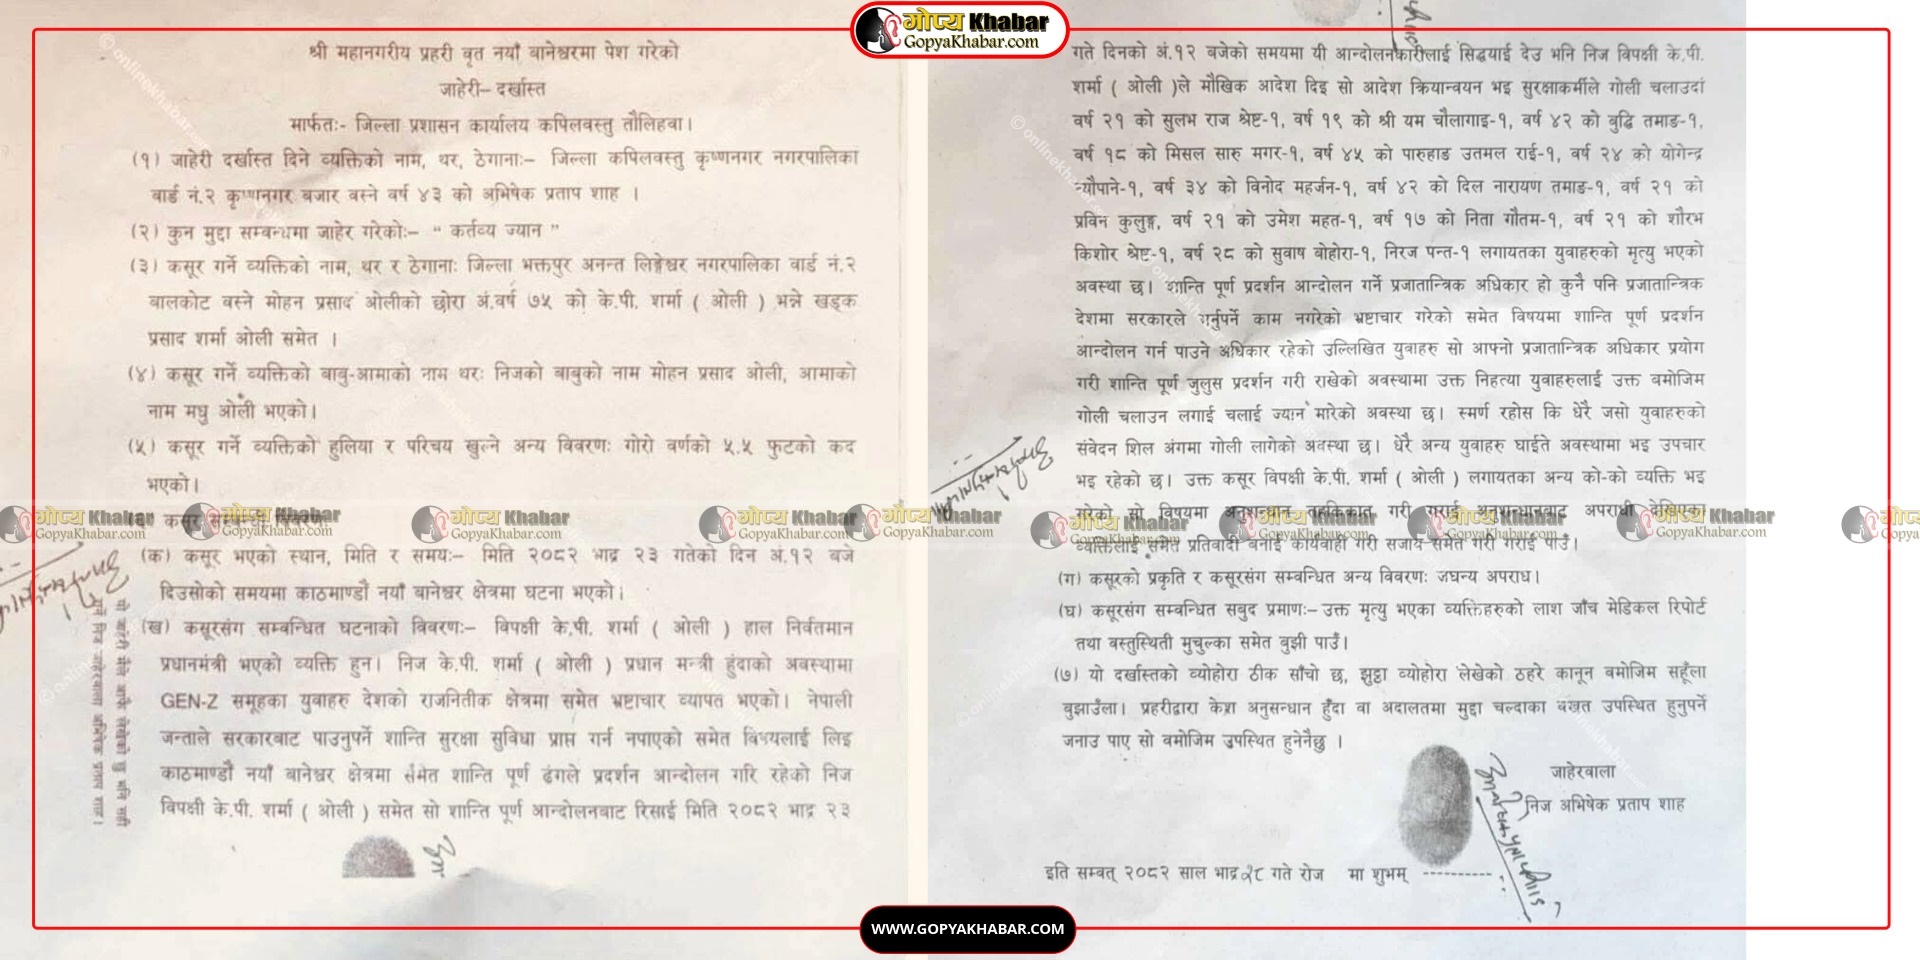 गोप्य Khabar
GopyaKhabar.com
श्री महानगरीय प्रहरी वृत नयाँ बानेश्वरमा पेश गरेको
जाहेरी– दर्खास्त
मार्फतः- जिल्ला प्रशासन कार्यालय कपिलवस्तु तौलिहवा।
(१) जाहेरी दर्खास्त दिने व्यक्तिको नाम, थर, ठेगानाः– जिल्ला कपिलवस्तु कृष्णनगर नगरपालिका
वार्ड नं.२ कृष्णनगर बजार वस्ने वर्ष ४३ को अभिषेक प्रताप शाह ।
(२) कुन मुद्दा सम्बन्धमा जाहेर गरेकोः– “ कर्तव्य ज्यान ”
(३) कसूर गर्ने व्यक्तिको नाम, थर र ठेगानाः जिल्ला भक्तपुर अनन्त लिङ्गेश्वर नगरपालिका वार्ड नं.२
बालकोट वस्ने मोहन प्रसाद ओलीको छोरा अं.वर्ष ७५ को के.पी. शर्मा ( ओली ) भन्ने खड्क
प्रसाद शर्मा ओली समेत ।
(४) कसूर गर्ने व्यक्तिको बाबु-आमाको नाम थरः निजको बाबुको नाम मोहन प्रसाद ओली, आमाको
नाम मधु ओली भएको।
(५) कसूर गर्ने व्यक्तिको हुलिया र परिचय खुल्ने अन्य विवरणः गोरो वर्णको ५.५ फुटको कद
भएको।
कसूर सम्बन्धी विवरण
(क) कसूर भएको स्थान, मिति र समयः– मिति २०८२ भाद्र २३ गतेको दिन अं.१२ बजे
दिउसोको समयमा काठमाण्डौं नयाँ बानेश्वर क्षेत्रमा घटना भएको।
(ख) कसूरसंग सम्बन्धित घटनाको विवरणः– विपक्षी के.पी. शर्मा ( ओली ) हाल निर्वतमान
प्रधानमंत्री भएको व्यक्ति हुन। निज के.पी. शर्मा ( ओली ) प्रधान मन्त्री हुंदाको अवस्थामा
GEN-Z समूहका युवाहरु देशको राजनितीक क्षेत्रमा समेत भ्रष्टाचार व्यापत भएको। नेपाली
जन्ताले सरकारबाट पाउनुपर्ने शान्ति सुरक्षा सुविधा प्राप्त गर्न नपाएको समेत विषयलाई लिइ
काठमाण्डौं नयाँ बानेश्वर क्षेत्रमा समेत शान्ति पूर्ण ढंगले प्रदर्शन आन्दोलन गरि रहेको निज
विपक्षी के.पी. शर्मा ( ओली ) समेत सो शान्ति पूर्ण आन्दोलनबाट रिसाई मिति २०८२ भाद्र २३
गते दिनको अं.१२ बजेको समयमा यी आन्दोलनकारीलाई सिद्धयाई देउ भनि निज विपक्षी के.पी.
शर्मा ( ओली )ले मौखिक आदेश दिइ सो आदेश क्रियान्वयन भइ सुरक्षाकर्मीले गोली चलाउदां
वर्ष २१ को सुलभ राज श्रेष्ट-१, वर्ष १९ को श्री यम चौलागाइ-१, वर्ष ४२ को बुद्धि तमाङ-१,
वर्ष १८ को मिसल सारु मगर-१, वर्ष ४५ को पारुहाड उतमल राई-१, वर्ष २४ को योगेन्द्र
न्यौपाने-१, वर्ष ३४ को विनोद महर्जन-१, वर्ष ४२ को दिल नारायण तमाङ-१, वर्ष २१ को
प्रविन कुलुङ्ग, वर्ष २१ को उमेश महत-१, वर्ष १७ को निता गौतम-१, वर्ष २१ को शौरभ
किशोर श्रेष्ट-१, वर्ष २८ को सुवाष बोहोरा-१, निरज पन्त-१ लगायतका युवाहरुको मृत्यु भएको
अवस्था छ। शान्ति पूर्ण प्रदर्शन आन्दोलन गर्ने प्रजातान्त्रिक अधिकार हो कुनै पनि प्रजातान्त्रिक
देशमा सरकारले गर्नुपर्ने काम नगरेको भ्रष्टाचार गरेको समेत विषयमा शान्ति पूर्ण प्रदर्शन
आन्दोलन गर्न पाउने अधिकार रहेको उल्लिखित युवाहरु सो आफ्नो प्रजातान्त्रिक अधिकार प्रयोग
गरी शान्ति पूर्ण जुलुस प्रदर्शन गरी राखेको अवस्थामा उक्त निहत्या युवाहरुलाई उक्त बमोजिम
गोली चलाउन लगाई चलाई ज्यान मारेको अवस्था छ। स्मर्ण रहोस कि धेरै जसो युवाहरुको
संवेदन शिल अंगमा गोली लागेको अवस्था छ। धेरै अन्य युवाहरु घाईते अवस्थामा भइ उपचार
भइ रहेको छ। उक्त कसूर विपक्षी के.पी. शर्मा ( ओली ) लगायतका अन्य को-को व्यक्ति भइ
गरेको सो विषयमा अनुसन्धान तहकिकात गरी गराई अनुसन्धानबाट अपराधी देखिएका
व्यक्तिलाई समेत प्रतिवादी बनाई कार्यवाही गरी सजाय समेत गरी गराई पाउँ।
(ग) कसूरको प्रकृति र कसूरसंग सम्वन्धित अन्य विवरणः जघन्य अपराध।
(घ) कसूरसंग सम्बन्धित सबुद प्रमाणः– उक्त मृत्यु भएका व्यक्तिहरुको लाश जाँच मेडिकल रिपोर्ट
तथा वस्तुस्थिती मुचुल्का समेत बुझी पाउँ।
(७) यो दर्खास्तको व्योहोरा ठीक साँचो छ, झुट्ठा व्योहोरा लेखेको ठहरे कानून बमोजिम सहूँला
बुझाउँला। प्रहरीद्वारा केश्रा अनुसन्धान हुँदा वा अदालतमा मुद्दा चल्दाका बखत उपस्थित हुनुपर्ने
जनाउ पाए सो बमोजिम उपस्थित हुनेनैछु ।
जाहेरवाला
निज अभिषेक प्रताप शाह
इति सम्वत् २०८२ साल भाद्र २८ गते रोज मा शुभम्
WWW.GOPYAKHABAR.COM